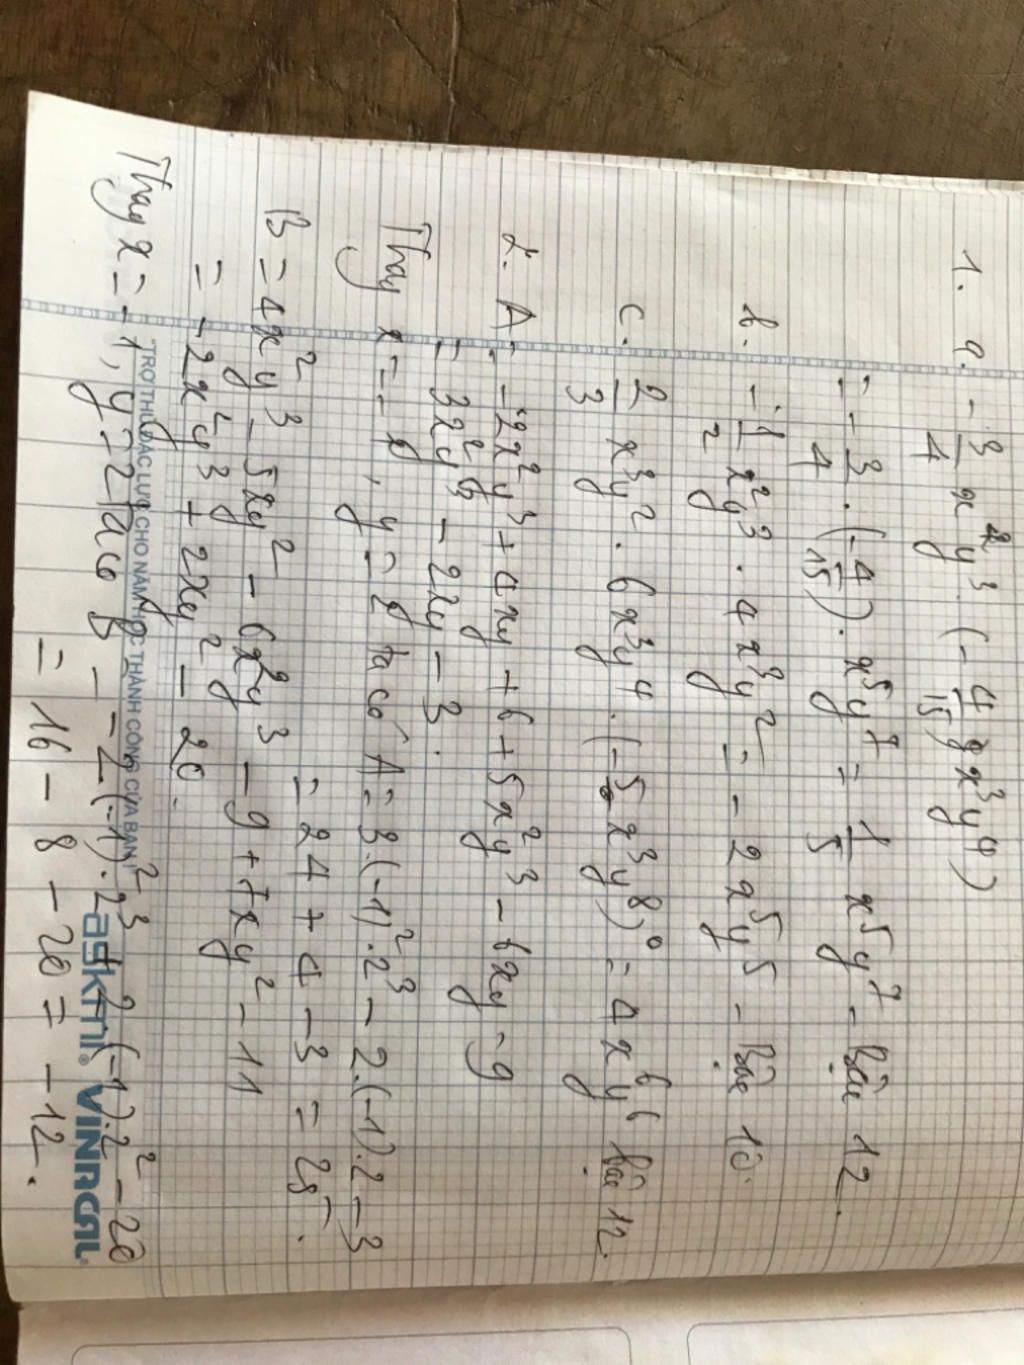 1. a. -3/4 x²y³ . (-4/15 x³y⁴)
= -3/4 . (-4/15) . x⁵y⁷ = 1/5 x⁵y⁷ - Bậc 12.
b. -1/2 x²y³ . 4x³y² = -2x⁵y⁵ - Bậc 10.
c. 2/3 x³y² . 6x³y⁴ . (-5x³y⁸)⁰ = 4x⁶y⁶ bậc 12.
2. A = -2x²y³ + 4xy + 6 + 5x²y³ - 6xy - 9
= 3x²y³ - 2xy - 3.
Thay x = -1, y = 2 ta có A = 3.(-1)².2³ - 2.(-1).2 - 3
= 24 + 4 - 3 = 25.
B = 4x²y³ - 5xy² - 6x²y³ - 9 + 7xy² - 11
= -2x²y³ + 2xy² - 20.
Thay x = -1, y = 2 ta có B = -2.(-1)².2³ + 2.(-1).2² - 20
= 16 - 8 - 20 = -12.
TRỢ THỦ ĐẮC LỰC CHO NĂM HỌC THÀNH CÔNG CỦA BẠN!
askmi® VINACAL